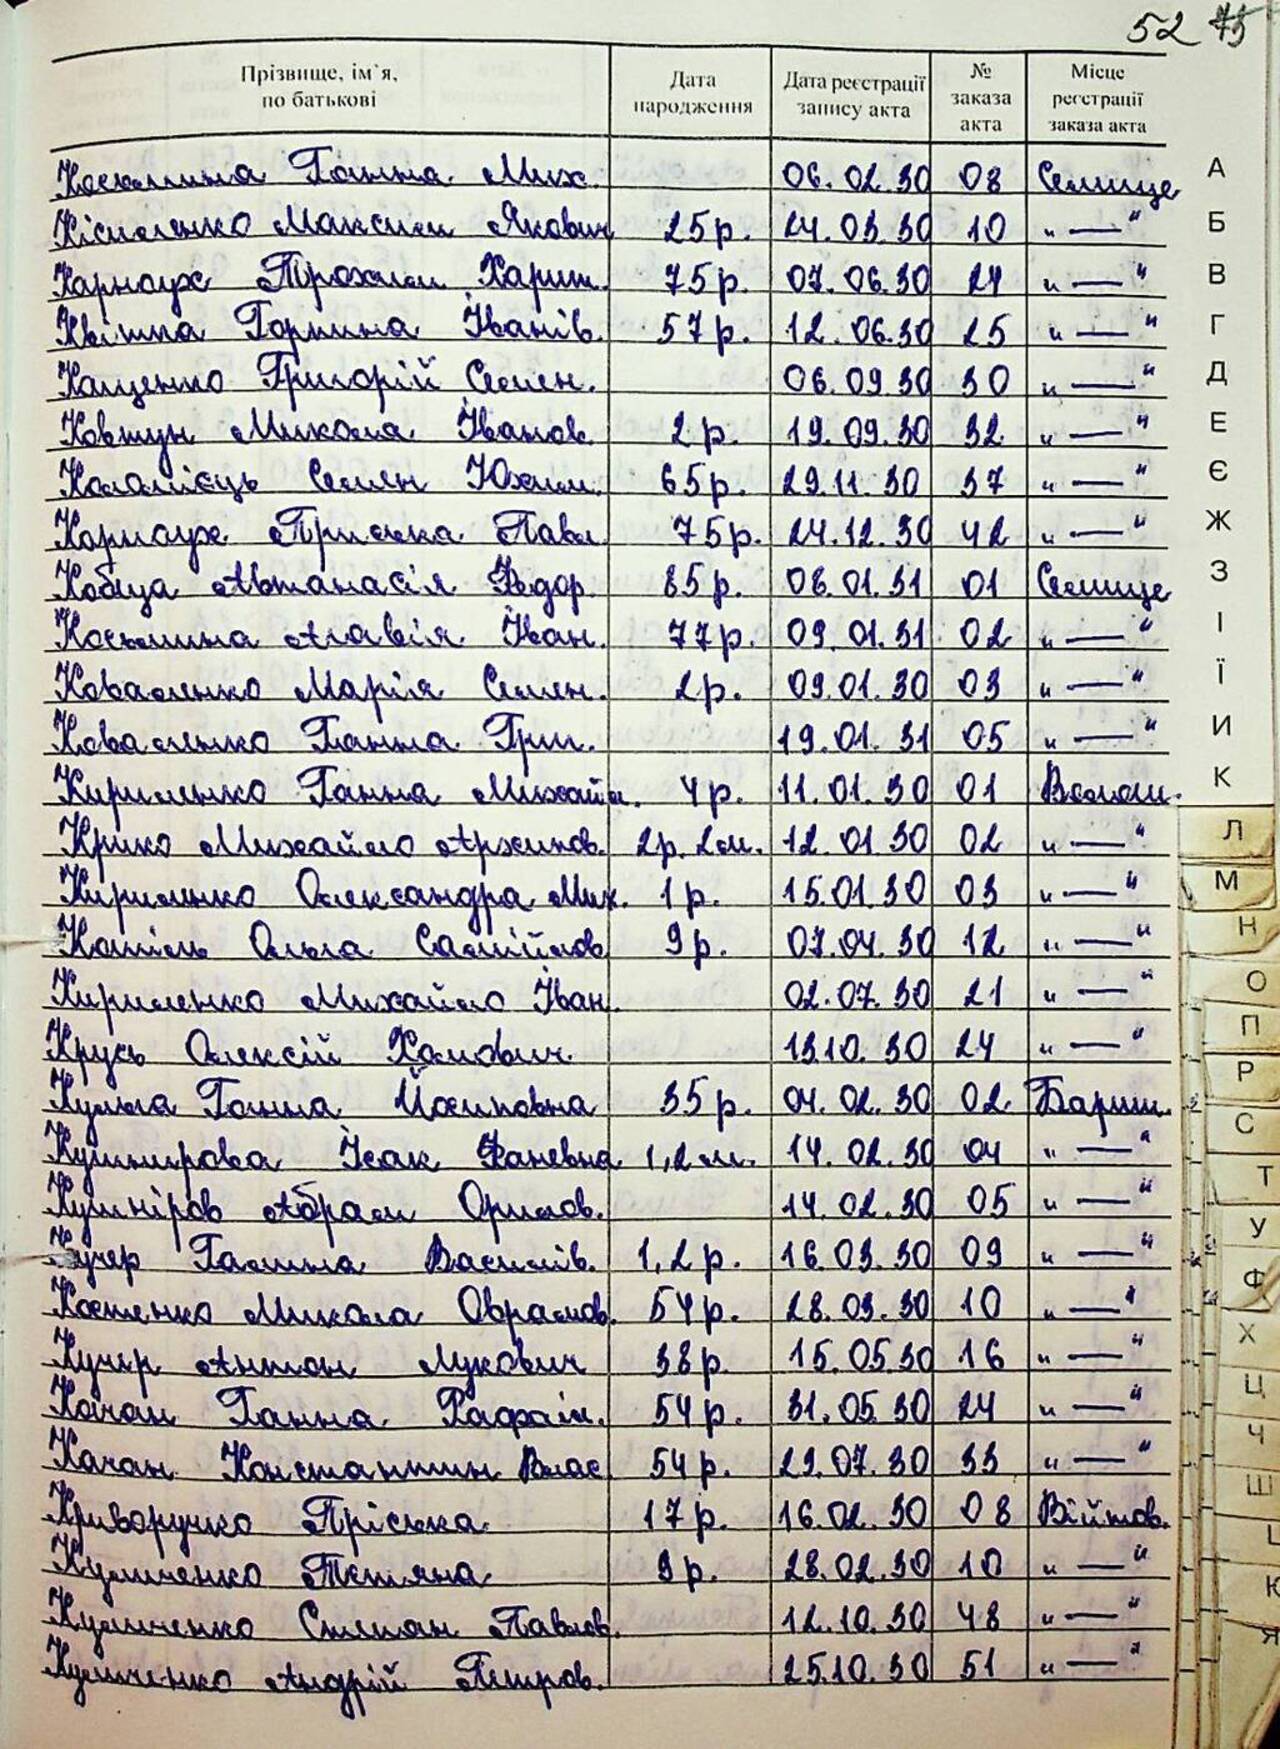 52 75
Прізвище, ім`я, по батькові | Дата народження | Дата реєстрації запису акта | № заказа акта | Місце реєстрації заказа акта
Косьмина Ганна Мих. 06.02.30 08 Селище
Кісиленко Максим Якович 25р. 24.03.30 10 „—"
Карнаух Трохим Харит. 75р. 07.06.30 24 „—"
Квітка Горпина Іванів. 57р. 12.06.30 25 „—"
Кащенко Григорій Семен. 06.09.30 30 „—"
Ковтун Микола Іванов. 2р. 19.09.30 32 „—"
Коломієць Семен Юхим. 65р. 29.11.30 37 „—"
Карнаух Приська Павл. 75р. 24.12.30 42 „—"
Кобца Автанасія Федор. 85р. 08.01.31 01 Селище
Косьмина Агавія Іван. 77р. 09.01.31 02 „—"
Коваленко Марія Семен. 2р. 09.01.30 03 „—"
Коваленко Ганна Григ. 19.01.31 05 „—"
Кириленко Ганна Михайл. 4р. 11.01.30 01 Волош.
Крико Михайло Архипов. 2р. 2м. 12.01.30 02 „—"
Кириленко Олександра Мих. 1р. 15.01.30 03 „—"
Котіль Ольга Самійлов. 9р. 07.04.30 12 „—"
Кириленко Михайло Іван. 02.07.30 21 „—"
Крусь Олексій Хомович 13.10.30 24 „—"
Кульга Ганна Йосиповна 35р. 04.02.30 02 Бариш.
Кушнирова Ісак Фаневна 1,2м. 14.02.30 04 „—"
Кушніров Абрам Орилов. 14.02.30 05 „—"
Кучер Галина Василів. 1,2р. 16.03.30 09 „—"
Костенко Микола Оврамов. 54р. 28.03.30 10 „—"
Кучер Антон Лукович 38р. 15.05.30 16 „—"
Качан Ганна Рафаїл. 54р. 31.05.30 24 „—"
Качан Константин Влас. 54р. 29.07.30 33 „—"
Криворучко Пріська 17р. 16.02.30 08 Війтов.
Кулиненко Тетяна 9р. 28.02.30 10 „—"
Кулиненко Степан Павлов. 12.10.30 48 „—"
Кулиненко Андрій Петров. 25.10.30 51 „—"
А
Б
В
Г
Д
Е
Є
Ж
З
І
Ї
И
К
Л
М
Н
О
П
Р
С
Т
У
Ф
Х
Ц
Ч
Ш
Я